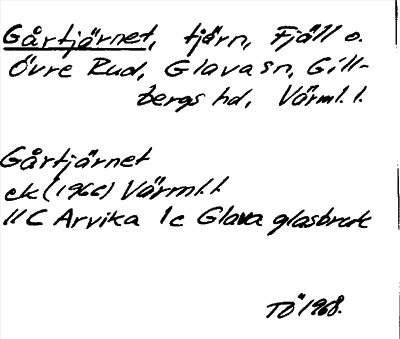 Gårtjärnet, tjärn, Fjäll o.
Övre Rud, Glava sn, Gill-
bergs hd, Värml. l.
Gårtjärnet
ek (1966) Värml. l
11C Arvika 1c Glava glasbruk
TÖ 1968.